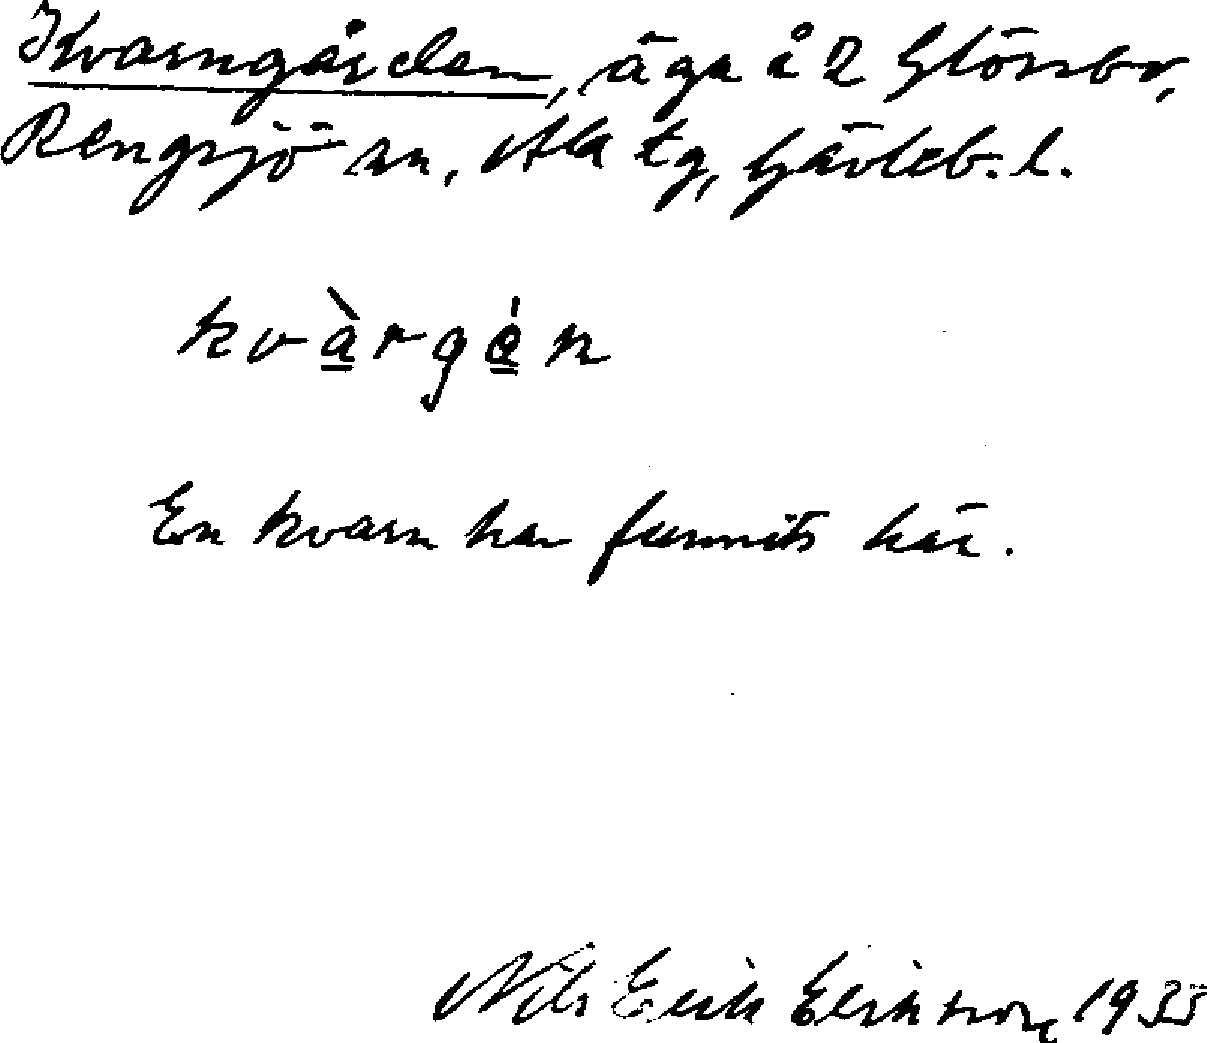 Kvarngården, äga å 2 Glössbo,
Rengsjö sn, Ala tg, Gävleb. l.
kvàrgǻn
En kvarn har funnits här.
Nils Erik Eriksson, 1935